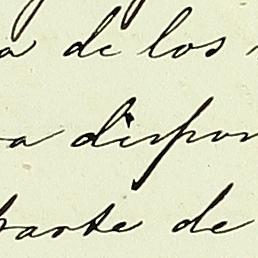 a de los
a dispon
parte de